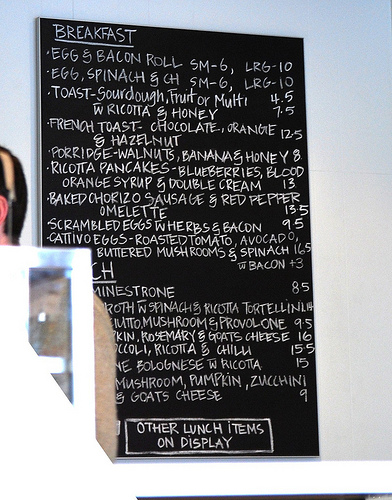 BREAKFAST
·EGG & BACON ROLL SM-6, LRG-10
·EGG, SPINACH & CH SM-6, LRG-10
·TOAST-Sourdough, Fruit or Multi 4.5
W RICOTTA & HONEY 7.5
·FRENCH TOAST- CHOCOLATE, ORANGE
& HAZELNUT 12.5
·PORRIDGE-WALNUTS, BANANA & HONEY 8
·RICOTTA PANCAKES-BLUEBERRIES, BLOOD
ORANGE SYRUP & DOUBLE CREAM 13
·BAKED CHORIZO SAUSAGE & RED PEPPER
OMELETTE 13.5
·SCRAMBLED EGGS W HERBS & BACON 9.5
·CATTIVO EGGS-ROASTED TOMATO, AVOCADO,
BUTTERED MUSHROOMS & SPINACH 16.5
W BACON +3
CH
MINESTRONE 8.5
ROTH W SPINACH & RICOTTA TORTELLINI 14
IUTTO, MUSHROOM & PROVOLONE 9.5
PKIN, ROSEMARY & GOATS CHEESE 16
OCCOLI, RICOTTA & CHILLI 15.5
NE BOLOGNESE W RICOTTA 15
MUSHROOM, PUMPKIN, ZUCCHINI
& GOATS CHEESE 9
OTHER LUNCH ITEMS
ON DISPLAY